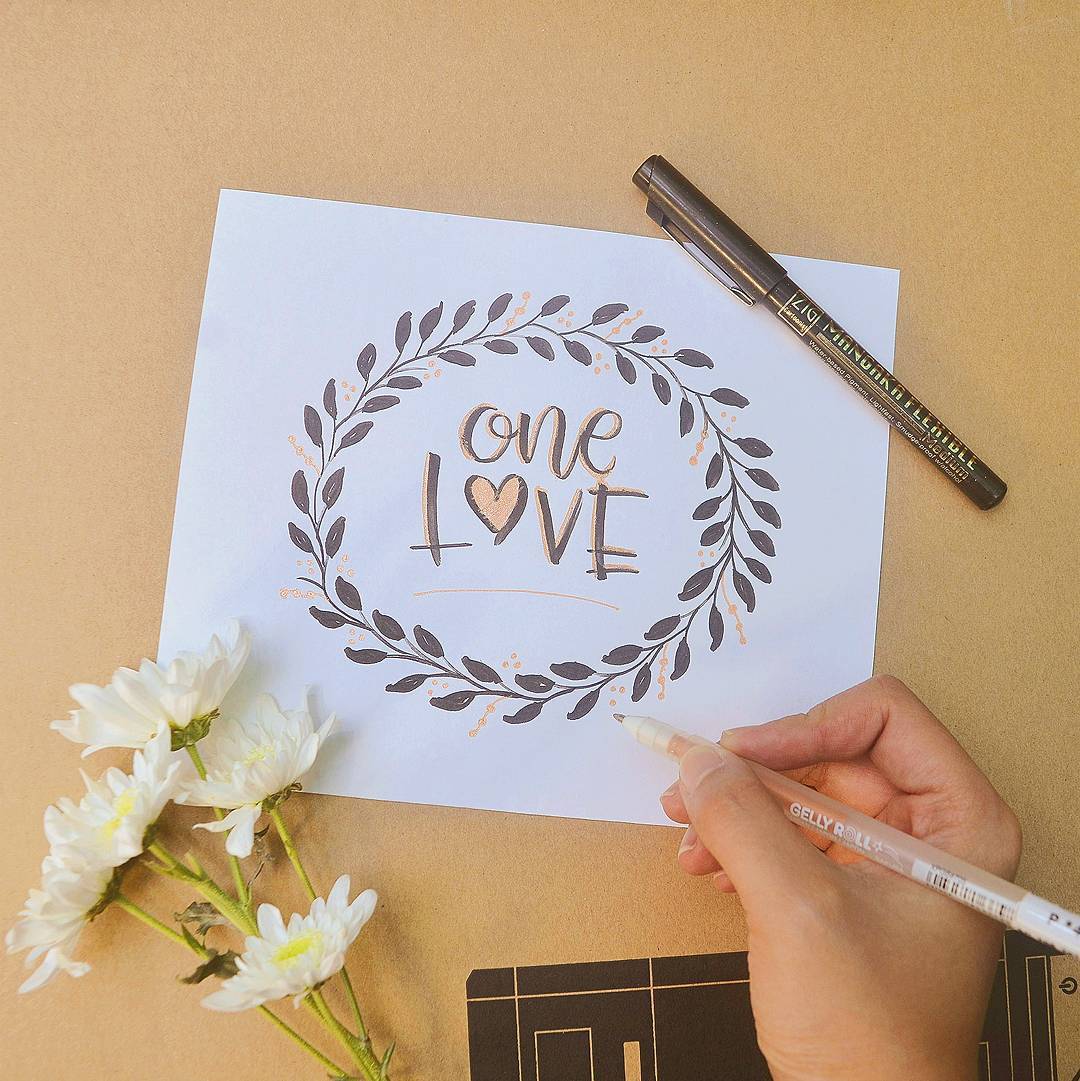 one
LOVE
ZIG
Cartoonist
MANGAKA FLEXIBLE
Medium
Water-based Pigment, Lightfast, Smudge-proof when dry
GELLY ROLL